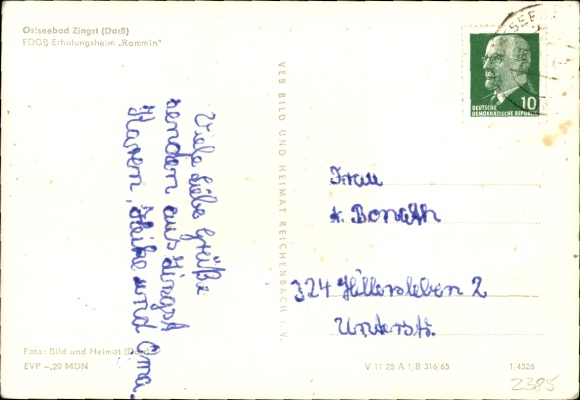 Ostseebad Zingst (Darß)
FDGB-Erholungsheim „Rammin"
VEB BILD UND HEIMAT REICHENBACH I. V.
DEUTSCHE
DEMOKRATISCHE REPUBLIK
10
Viele liebe Grüße
senden aus Zingst
Karen, Heike und Oma.
Frau
K. Bonath
324 Hillersleben 2
Unterstr.
Foto: Bild und Heimat
EVP –,20 MDN
V 11 28 A 1, B 316/65
1,4526
2385